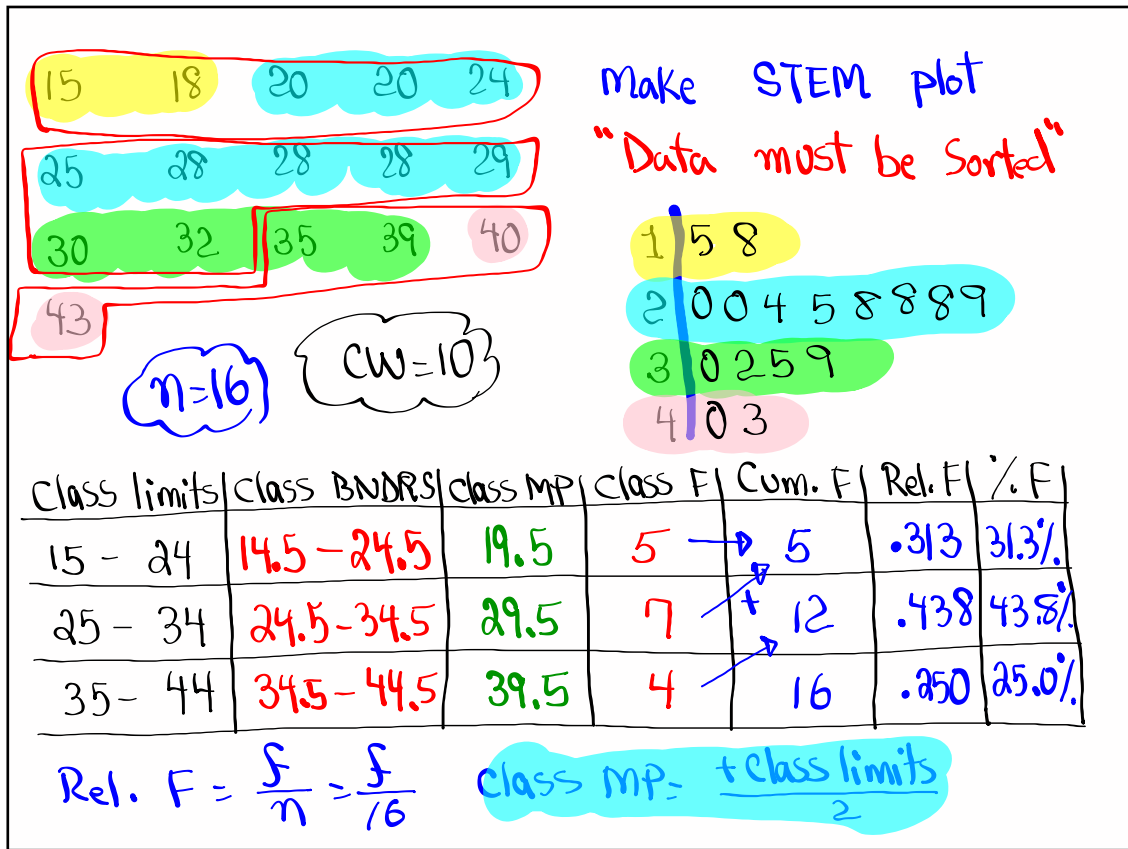 15 18 20 20 24
25 28 28 28 29
30 32 35 39 40
43
n=16
CW=10
Make STEM plot
"Data must be Sorted"
1 | 5 8
2 | 0 0 4 5 8 8 8 9
3 | 0 2 5 9
4 | 0 3
Class limits | Class BNDRS | Class MP | Class F | Cum. F | Rel. F | % F
15 - 24 | 14.5 - 24.5 | 19.5 | 5 | 5 | .313 | 31.3%
25 - 34 | 24.5 - 34.5 | 29.5 | 7 | + 12 | .438 | 43.8%
35 - 44 | 34.5 - 44.5 | 39.5 | 4 | 16 | .250 | 25.0%
Rel. F = f/n = f/16
Class MP = + Class limits / 2